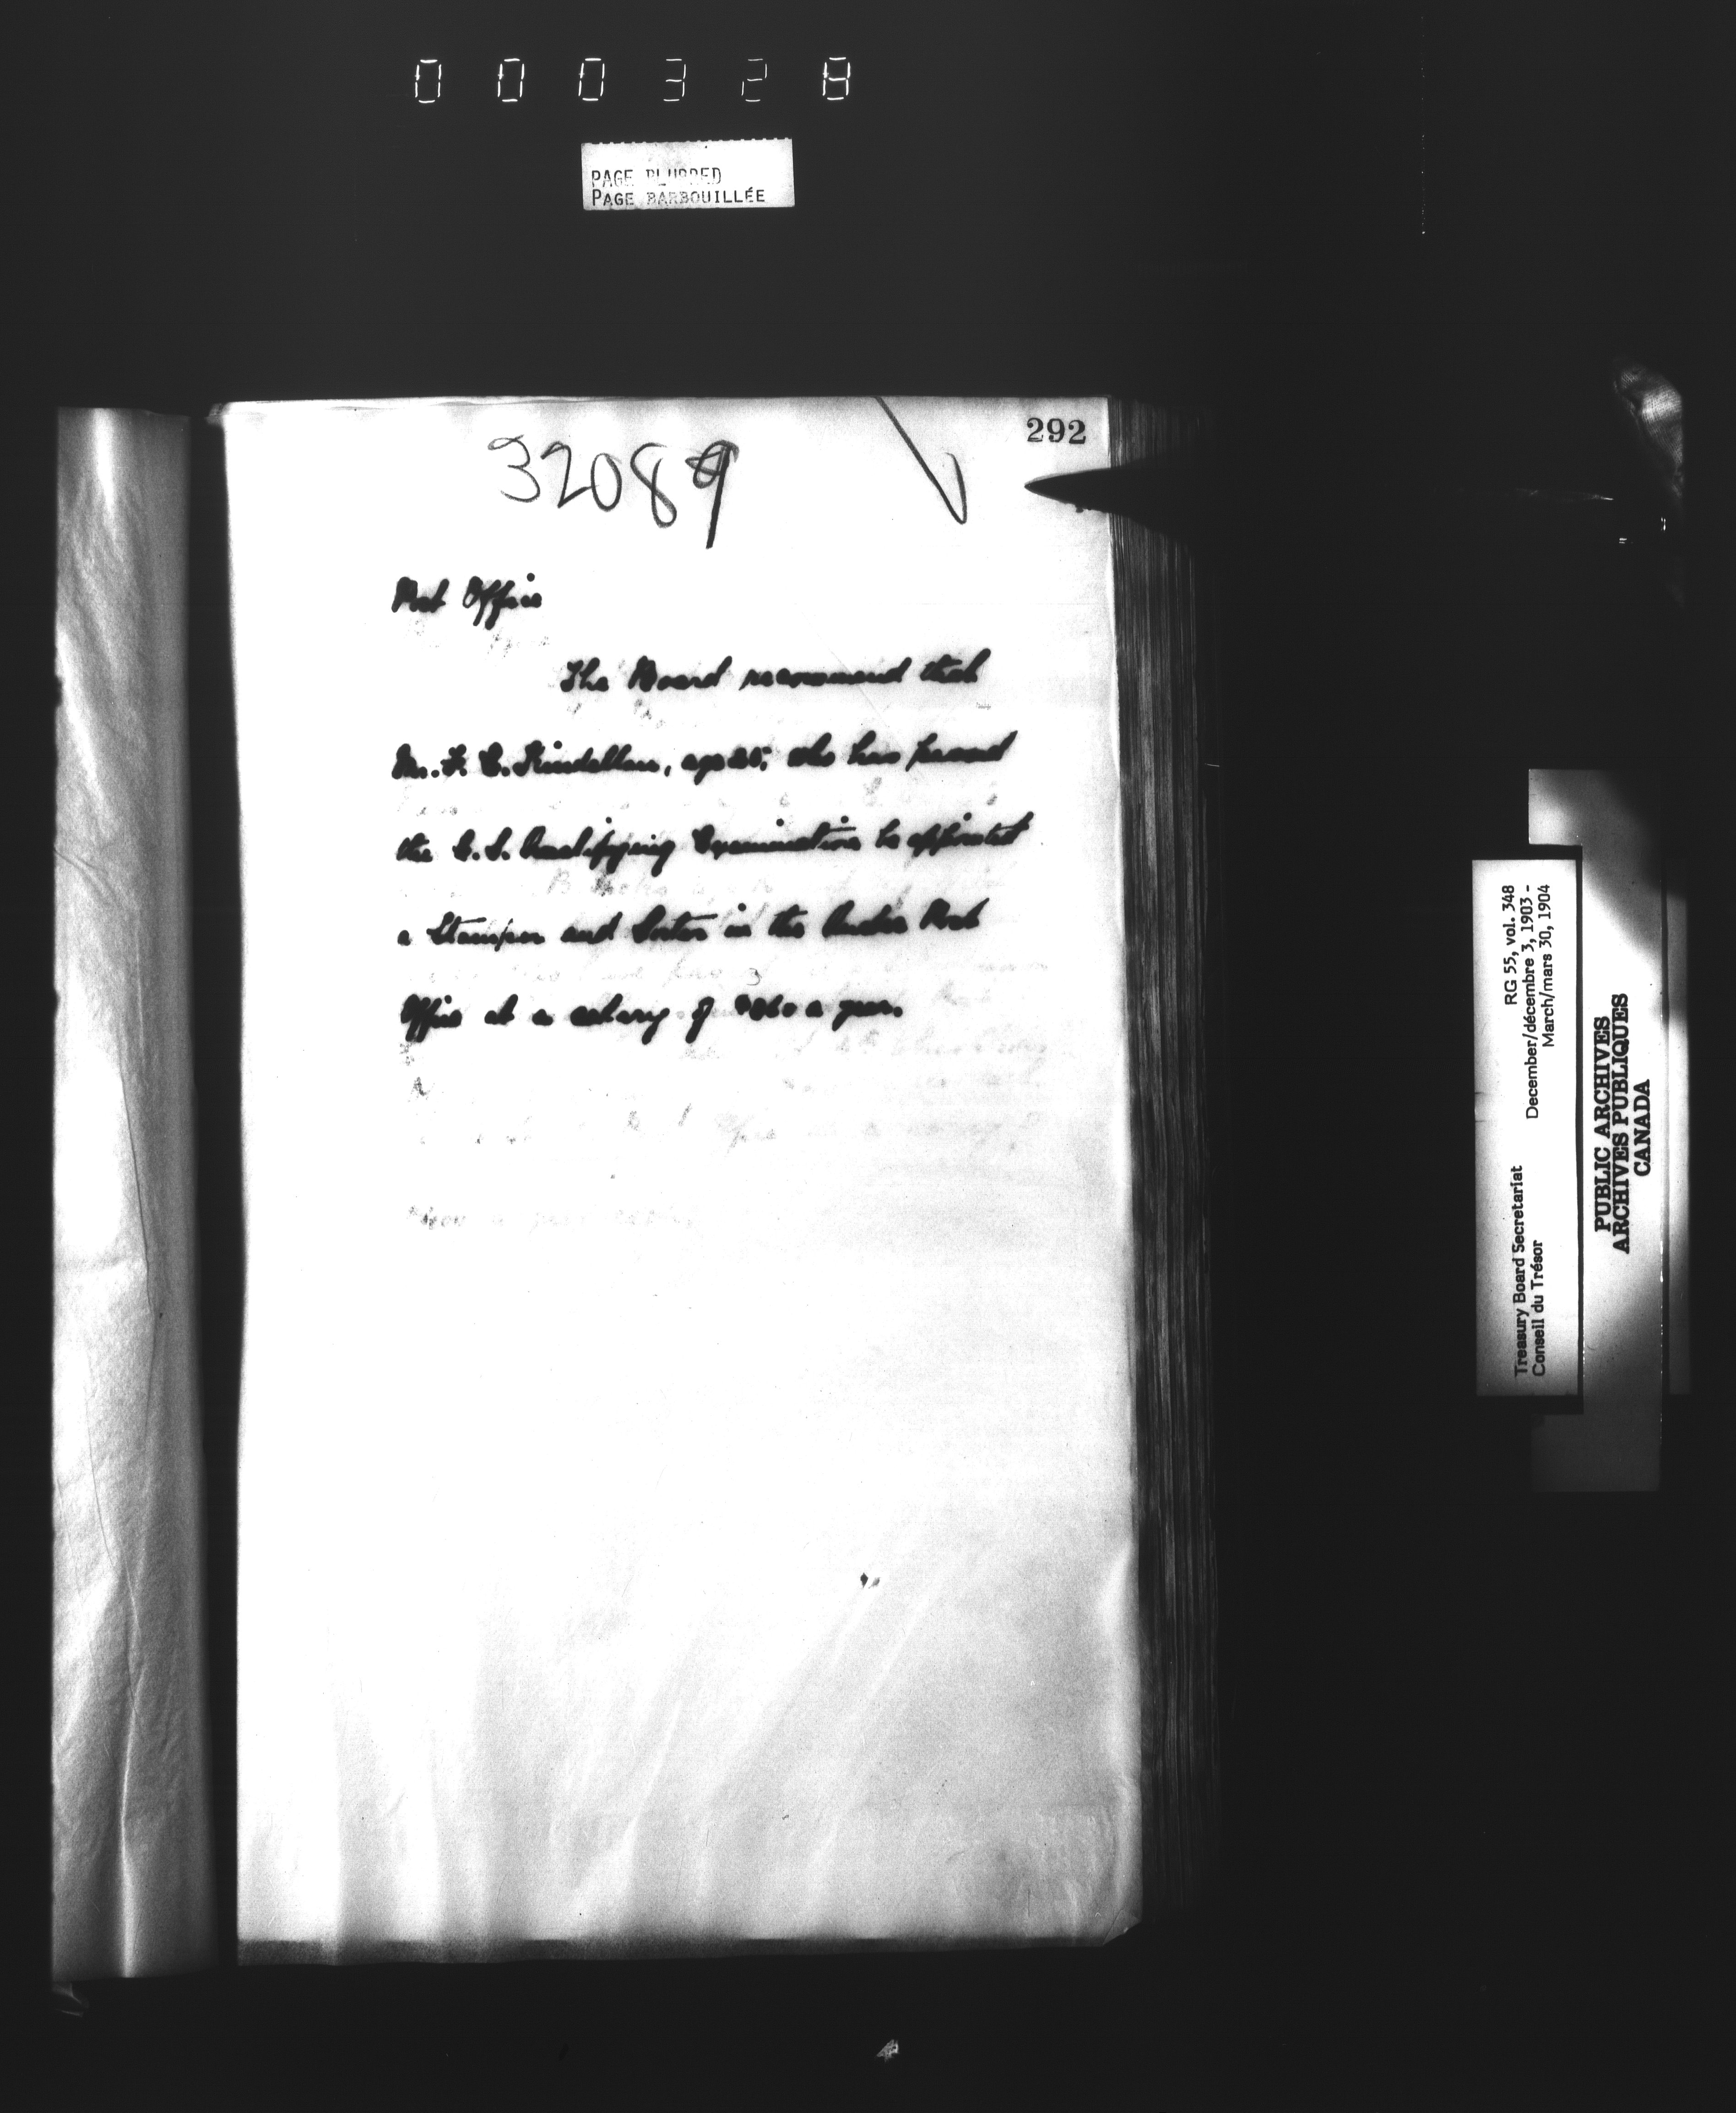 000328
PAGE BLURRED
PAGE BARBOUILLÉE
292
32089
Post Office
The Board recommend that
Mr. F. C. age 25, who has passed
the C.S. Qualifying Examination be appointed
a Stamper and Sorter in the Post
Office at a salary of a year.
RG 55, vol. 348
December/décembre 3, 1903 -
March/mars 30, 1904
Treasury Board Secretariat
Conseil du Trésor
PUBLIC ARCHIVES
ARCHIVES PUBLIQUES
CANADA